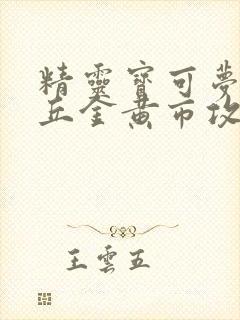 精靈寶可夢
丘金黃市攻
王雲五